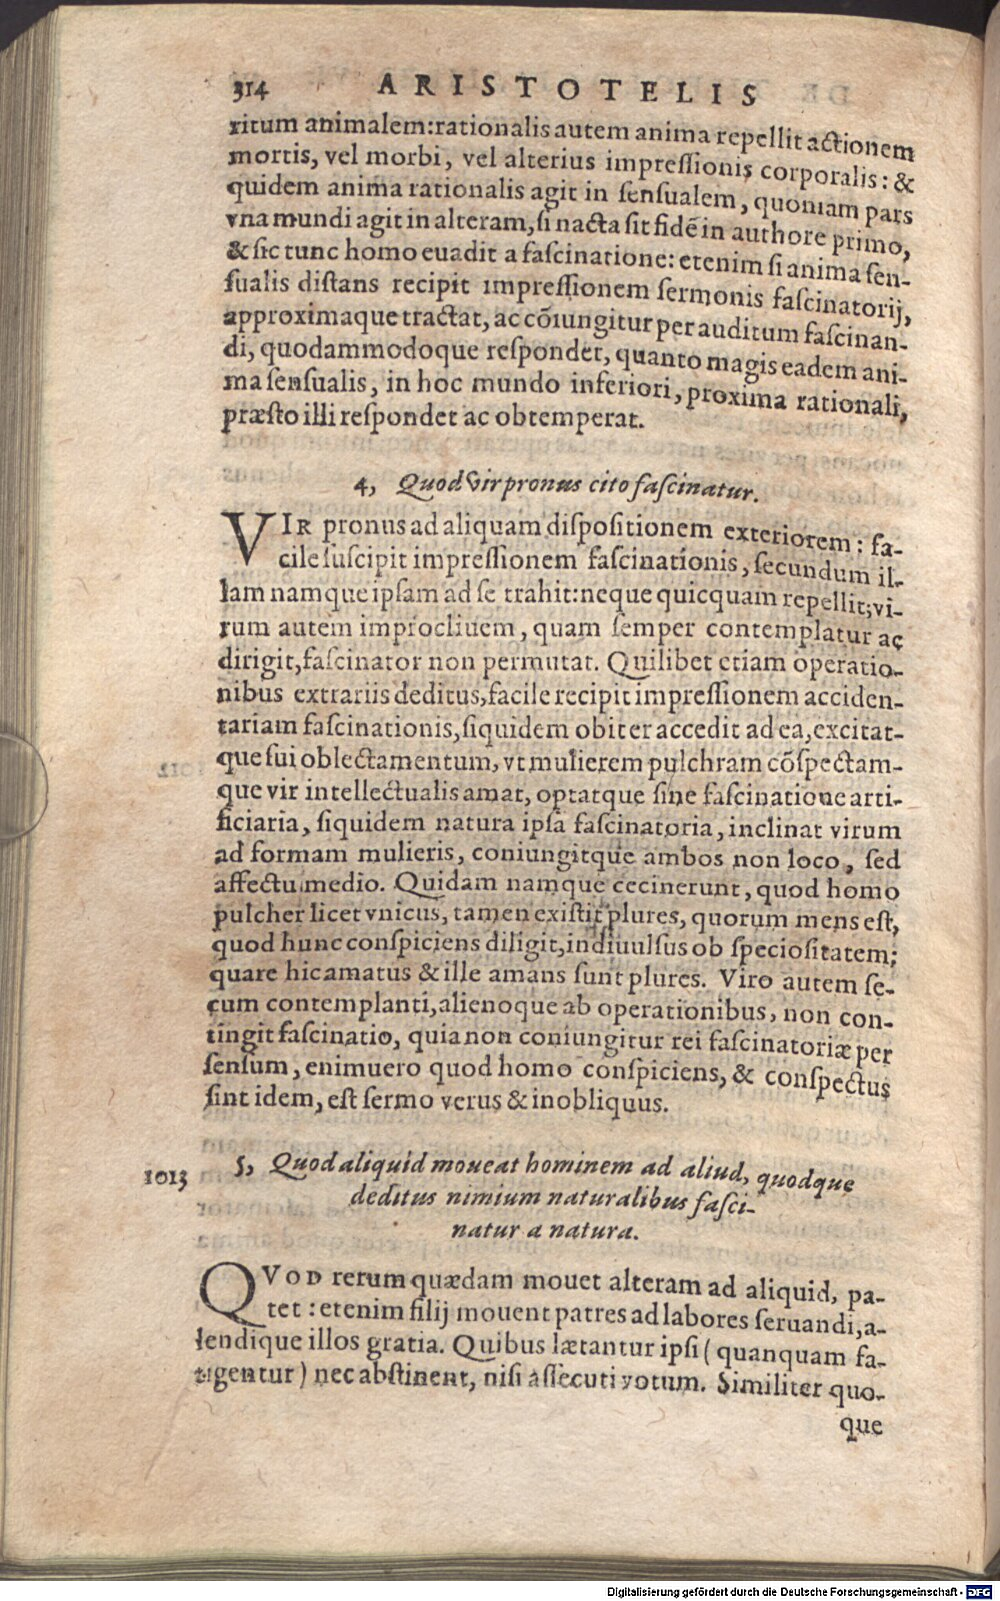 314 ARISTOTELIS
ritum animalem: rationalis autem anima repellit actionem
mortis, vel morbi, vel alterius impreſſionis corporalis: &
quidem anima rationalis agit in ſenſualem, quoniam pars
vna mundi agit in alteram, ſi nacta ſit fidē in authore primo,
& ſic tunc homo euadit a faſcinatione: etenim ſi anima ſen-
ſualis diſtans recipit impreſſionem ſermonis faſcinatorij,
approximaque tractat, ac cōiungitur per auditum faſcinan-
di, quodammodoque reſpondet, quanto magis eadem ani-
ma ſenſualis, in hoc mundo inferiori, proxima rationali,
præſto illi reſpondet ac obtemperat.
4, Quod vir pronus cito faſcinatur.
VIR pronus ad aliquam diſpoſitionem exteriorem: fa-
cile ſuſcipit impreſſionem faſcinationis, ſecundum il-
lam namque ipſam ad ſe trahit: neque quicquam repellit; vi-
rum autem improcliuem, quam ſemper contemplatur ac
dirigit, faſcinator non permutat. Quilibet etiam operatio-
nibus extrariis deditus, facile recipit impreſſionem acciden-
tariam faſcinationis, ſiquidem obiter accedit ad ea, excitat-
que ſui oblectamentum, vt mulierem pulchram cōſpectam-
que vir intellectualis amat, optatque ſine faſcinatione arti-
ficiaria, ſiquidem natura ipſa faſcinatoria, inclinat virum
ad formam mulieris, coniungitque ambos non loco, ſed
affectu medio. Quidam namque cecinerunt, quod homo
pulcher licet vnicus, tamen exiſtit plures, quorum mens eſt,
quod hunc conſpiciens diligit, indiuulſus ob ſpecioſitatem;
quare hic amatus & ille amans ſunt plures. Viro autem ſe-
cum contemplanti, alienoque ab operationibus, non con-
tingit faſcinatio, quia non coniungitur rei faſcinatoriæ per
ſenſum, enimuero quod homo conſpiciens, & conſpectus
ſint idem, eſt ſermo verus & inobliquus.
1013 5, Quod aliquid moueat hominem ad aliud, quodque
deditus nimium naturalibus faſci-
natur a natura.
QVOD rerum quædam mouet alteram ad aliquid, pa-
tet: etenim filij mouent patres ad labores ſeruandi, a-
lendique illos gratia. Quibus lætantur ipſi (quanquam fa-
tigentur) nec abſtinent, niſi aſſecuti votum. Similiter quo-
que
Digitalisierung gefördert durch die Deutsche Forschungsgemeinschaft - DFG